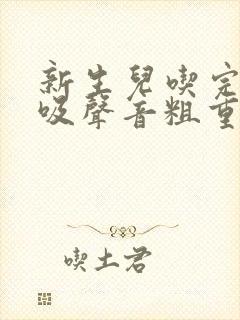 新生兒喫完
吸聲音粗重
喫土君